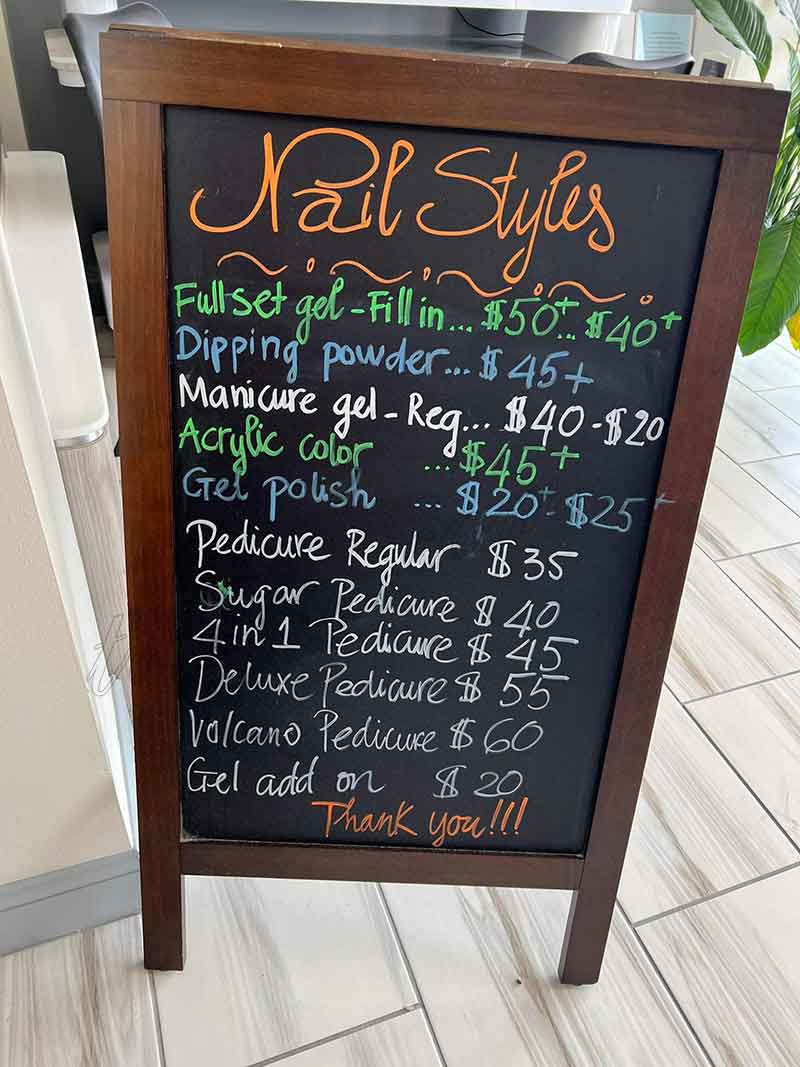 Nail Styles
Full set gel - Fill in... $50+.. $40+
Dipping powder... $45+
Manicure gel - Reg... $40 - $20
Acrylic color ... $45+
Gel polish ... $20+ - $25+
Pedicure Regular $35
Sugar Pedicure $40
4 in 1 Pedicure $45
Deluxe Pedicure $55
Volcano Pedicure $60
Gel add on $20
Thank you!!!